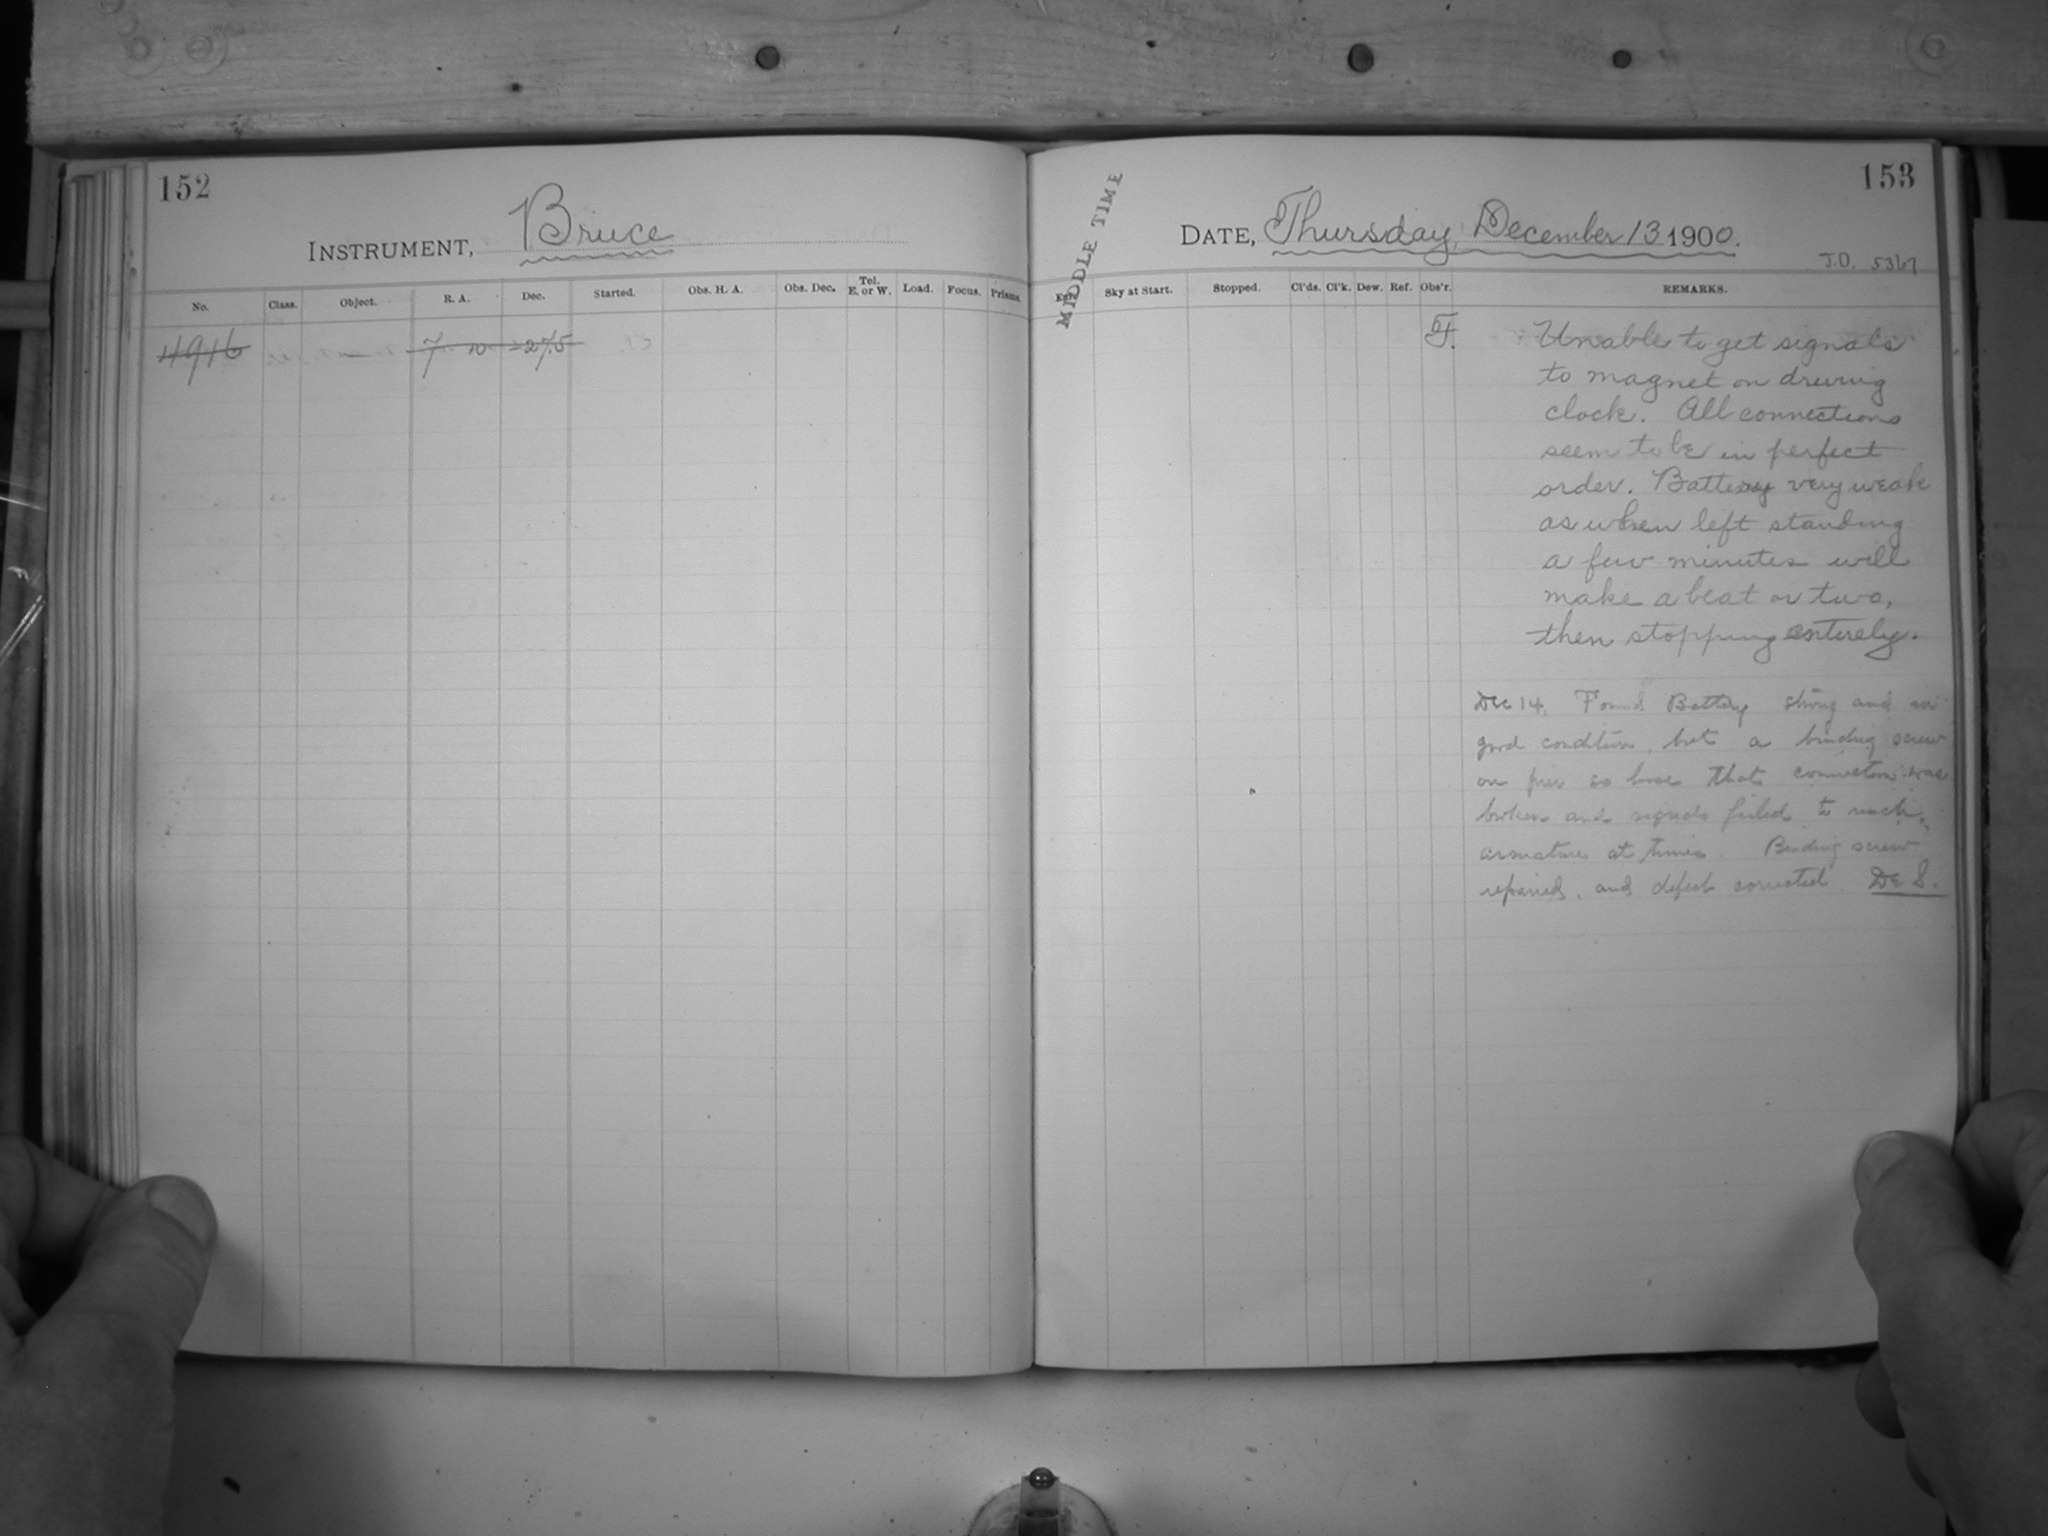 152
INSTRUMENT, Bruce
No. Class. Object. R. A. Dec. Started. Obs. H. A. Obs. Dec. Tel. E. or W. Load. Focus. Prisms.
4916 7 10 -27.5
153
MIDDLE TIME
DATE, Thursday, December 13 1900.
J.D. 5367
Sky at Start. Stopped. Cl'ds. Cl'k. Dew. Ref. Obs'r. REMARKS.
F. Unable to get signals
to magnet on driving
clock. All connections
seem to be in perfect
order. Battery very weak
as when left standing
a few minutes will
make a beat or two,
then stopping entirely.
Dec 14. Found Battery strong and in
good condition, but a binding screw
on pier so loose that connection was
broken and signals failed to reach
armature at times. Binding screw
repaired, and defect corrected